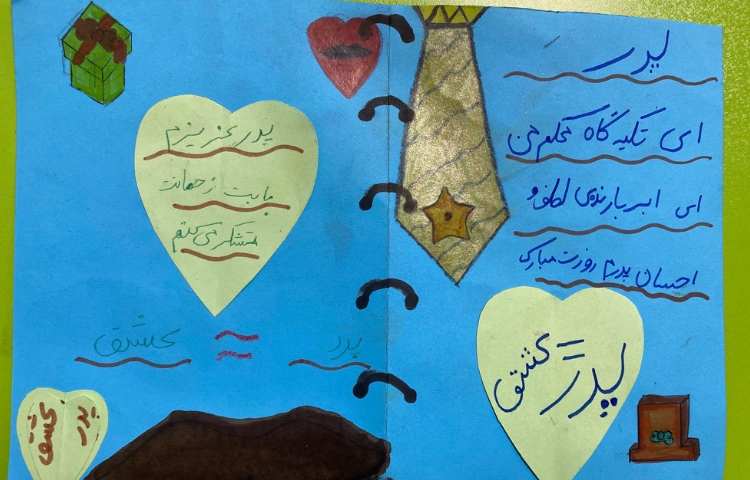 پدر
ای تکیه گاه محکم من
ای ابر بارندهی لطف و
احسان پدرم روزت مبارک
پدر = عشق
پدر عزیزم
بابت زحمات
متشکر می کنم
پدر ≈ عشق
پدر عشق